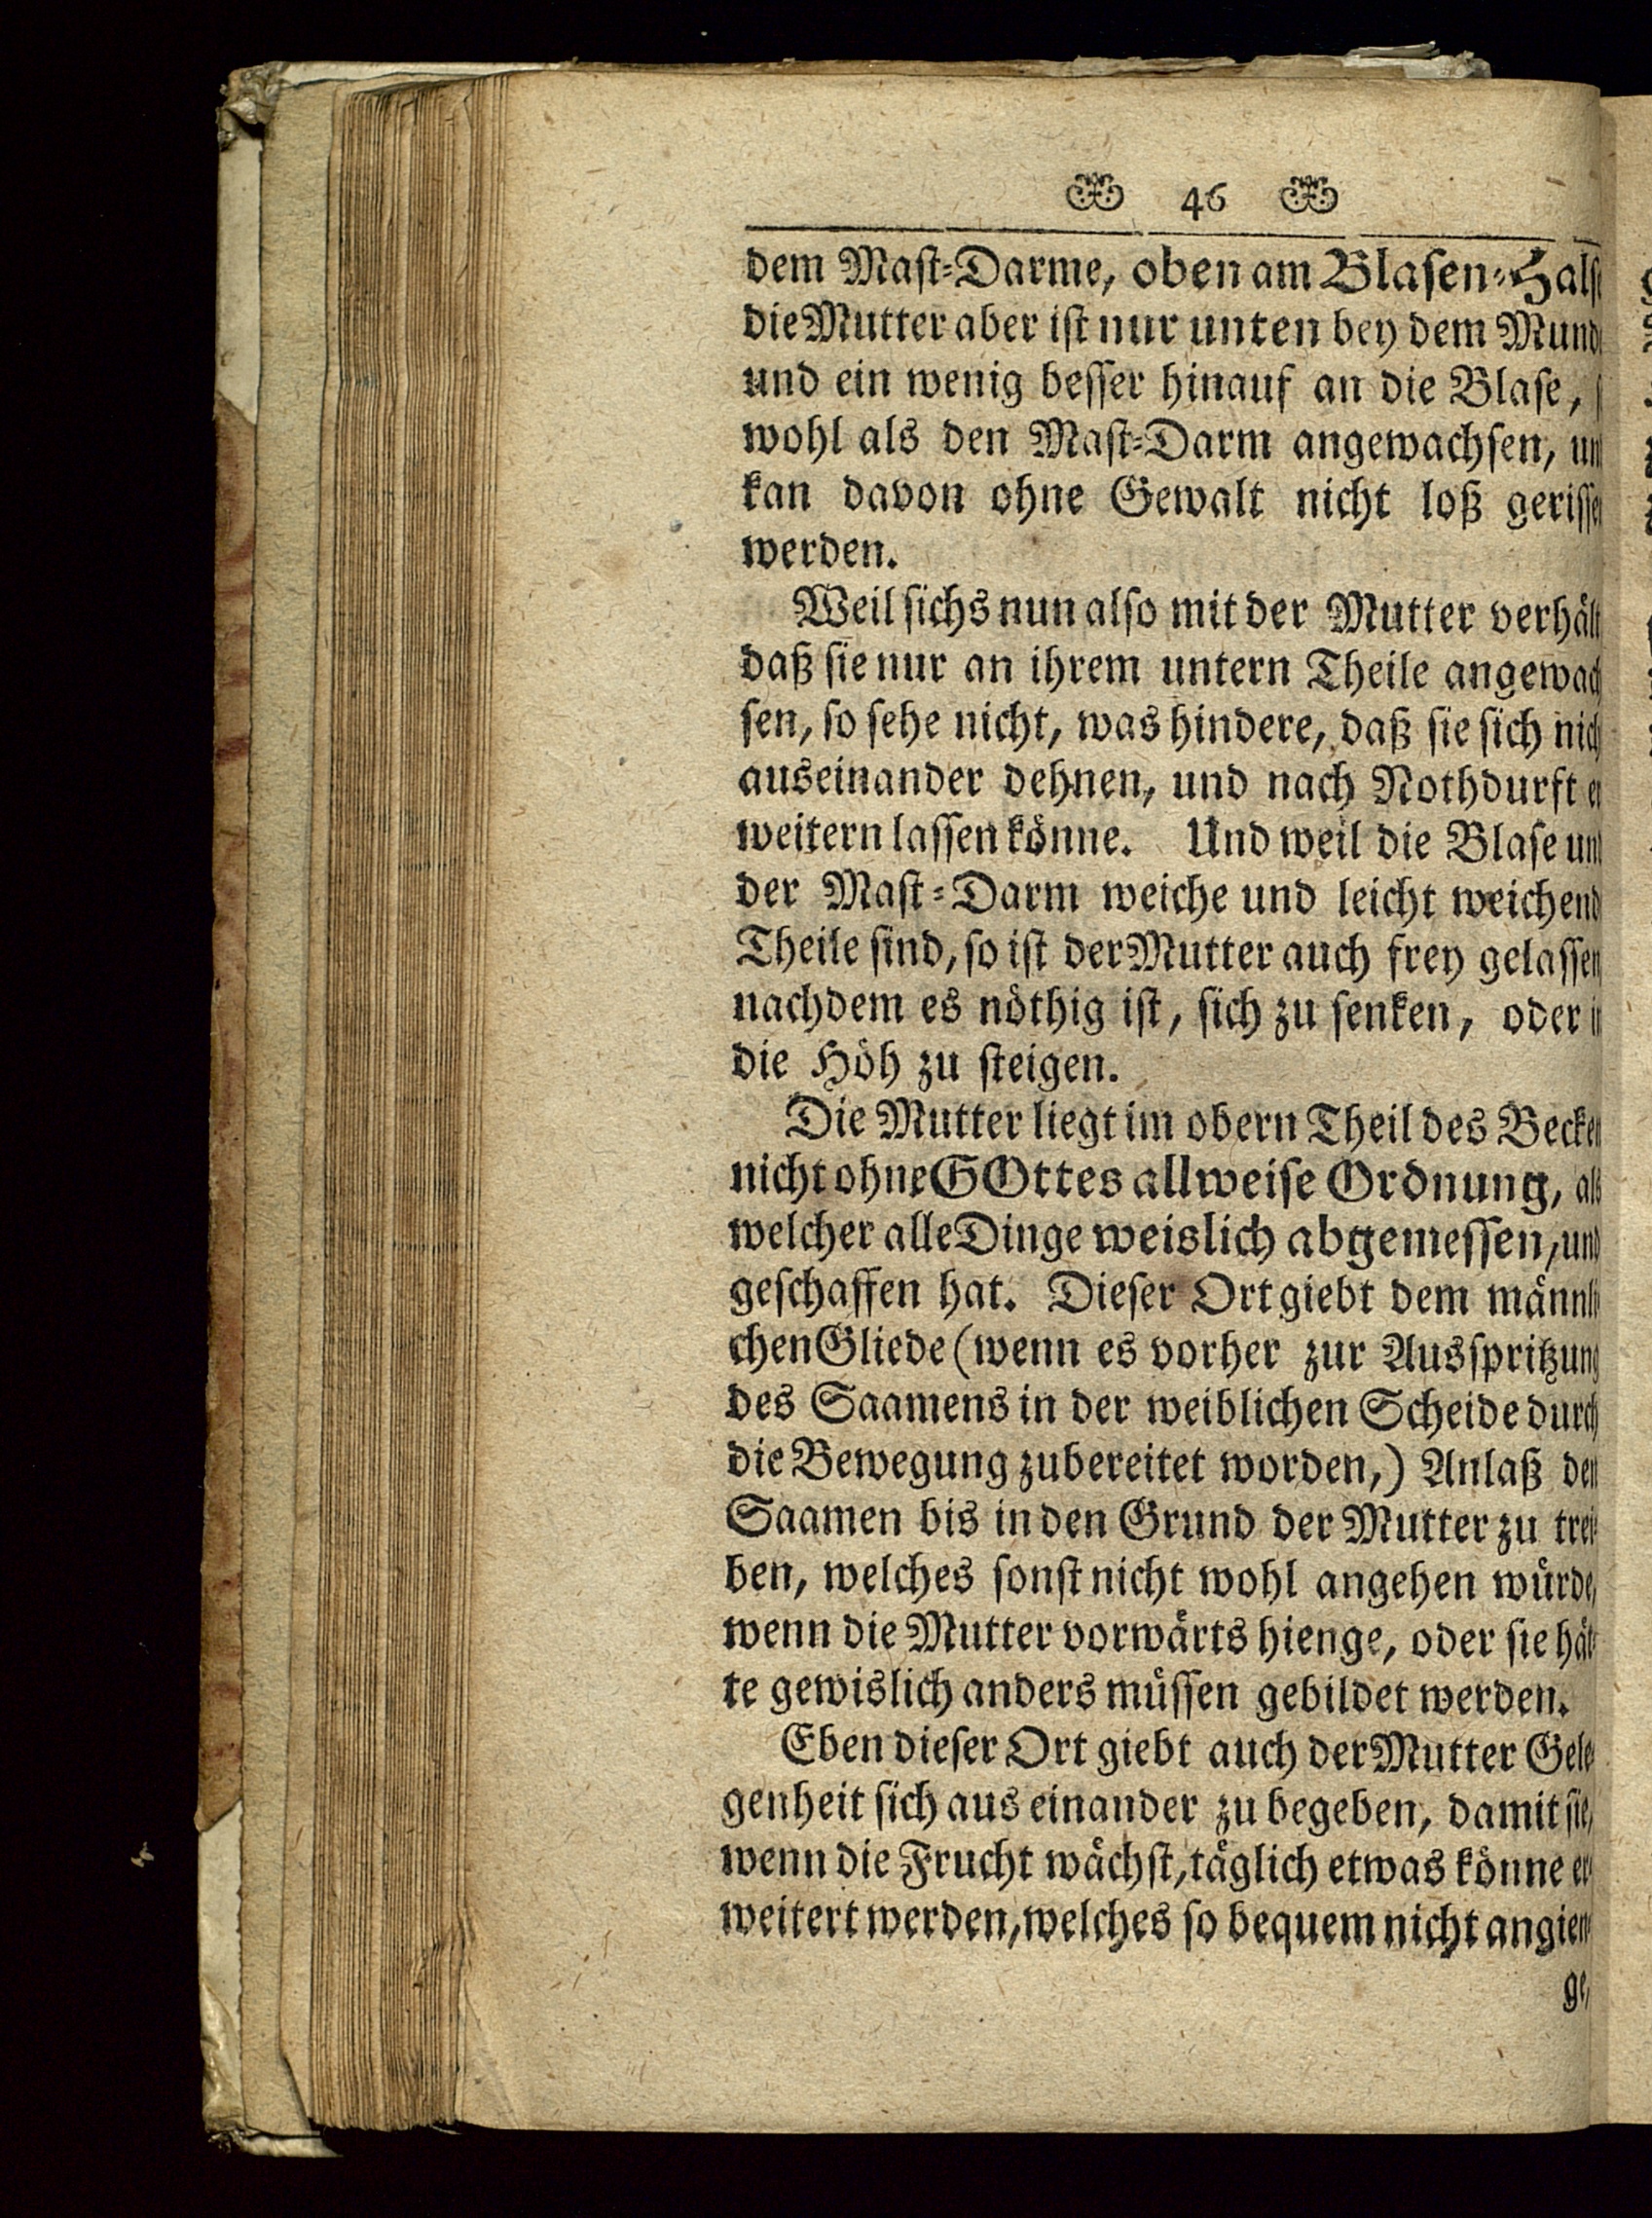 46
dem Mast-Darme, oben am Blasen-Hals
die Mutter aber ist nur unten bey dem Mund
und ein wenig besser hinauf an die Blase,
wohl als den Mast-Darm angewachsen, un
kan davon ohne Gewalt nicht loß gerisse
werden.
Weil sichs nun also mit der Mutter verhält
daß sie nur an ihrem untern Theile angewach
sen, so sehe nicht, was hindere, daß sie sich nich
auseinander dehnen, und nach Nothdurft er
weitern lassen könne. Und weil die Blase und
der Mast-Darm weiche und leicht weichend
Theile sind, so ist der Mutter auch frey gelassen
nachdem es nöthig ist, sich zu senken, oder in
die Höh zu steigen.
Die Mutter liegt im obern Theil des Becken
nicht ohne GOttes allweise Ordnung, als
welcher alle Dinge weislich abgemessen, und
geschaffen hat. Dieser Ort giebt dem männli
chen Gliede (wenn es vorher zur Ausspritzung
des Saamens in der weiblichen Scheide durch
die Bewegung zubereitet worden,) Anlaß den
Saamen bis in den Grund der Mutter zu trei-
ben, welches sonst nicht wohl angehen würde,
wenn die Mutter vorwärts hienge, oder sie hät-
te gewislich anders müssen gebildet werden.
Eben dieser Ort giebt auch der Mutter Gele
genheit sich aus einander zu begeben, damit sie,
wenn die Frucht wächst, täglich etwas könne er-
weitert werden, welches so bequem nicht angien-
ge,